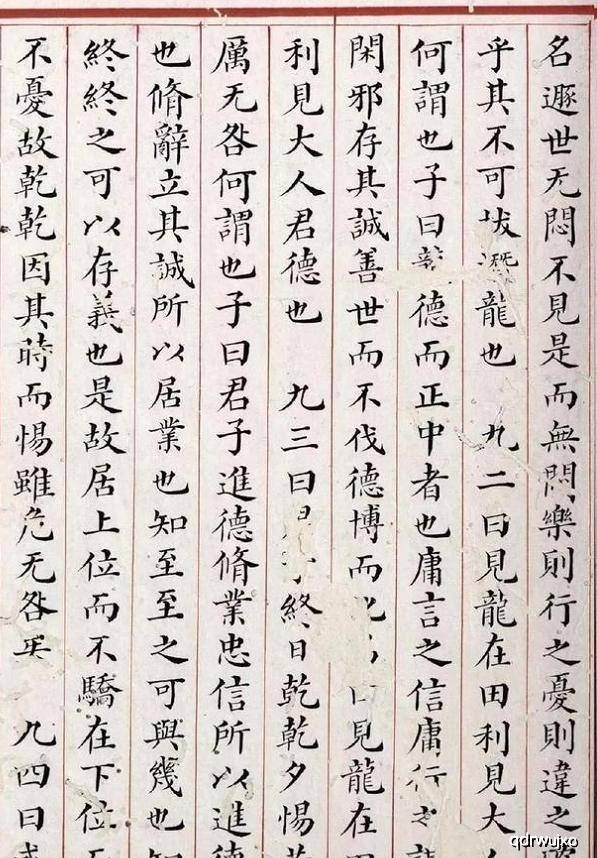 名遯世无悶不見是而無悶樂則行之憂則違之
乎其不可拔潛龍也 九二曰見龍在田利見大
何謂也子曰龍德而正中者也庸言之信庸行之
閑邪存其誠善世而不伐德博而化 見龍在
利見大人君德也 九三曰 終日乾乾夕惕
厲无咎何謂也子曰君子進德脩業忠信所以進德
也脩辭立其誠所以居業也知至至之可與幾也知
終終之可以存義也是故居上位而不驕在下位
不憂故乾乾因其時而惕雖危无咎矣 九四曰或
qdrwujxo